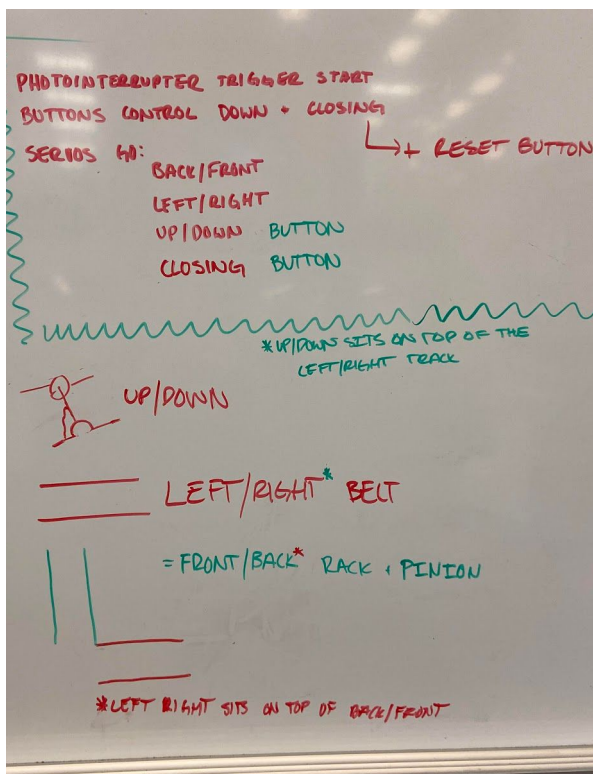 PHOTOINTERRUPTER TRIGGER START
BUTTONS CONTROL DOWN + CLOSING
+ RESET BUTTON
SERVOS GO:
BACK/FRONT
LEFT/RIGHT
UP/DOWN BUTTON
CLOSING BUTTON
*UP/DOWN SITS ON TOP OF THE
LEFT/RIGHT TRACK
UP/DOWN
LEFT/RIGHT* BELT
= FRONT/BACK* RACK + PINION
*LEFT RIGHT SITS ON TOP OF BACK/FRONT